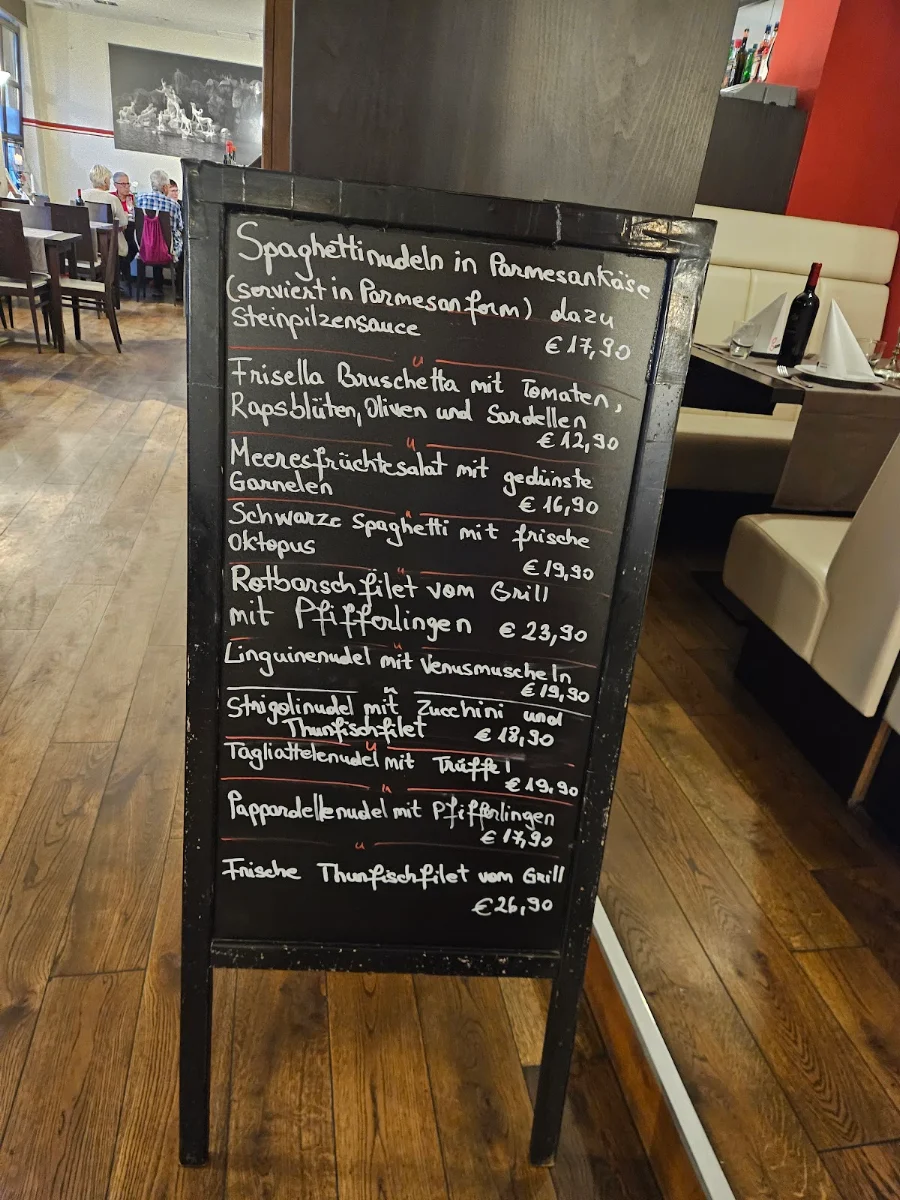 Spaghettinudeln in Parmesankäse
(serviert in Parmesanform) dazu
Steinpilzensauce
€ 17,90
Frisella Bruschetta mit Tomaten,
Rapsblüten, Oliven und Sardellen
€ 12,90
Meeresfrüchtesalat mit gedünste
Garnelen
€ 16,90
Schwarze Spaghetti mit frische
Oktopus
€ 19,90
Rotbarschfilet vom Grill
mit Pfifferlingen € 23,90
Linguinenudel mit Venusmuscheln
€ 19,90
Strigolinudel mit Zucchini und
Thunfischfilet € 18,90
Tagliattelenudel mit Trüffel
€ 19.90
Pappardellenudel mit Pfifferlingen
€ 17,90
Frische Thunfischfilet vom Grill
€ 26,90